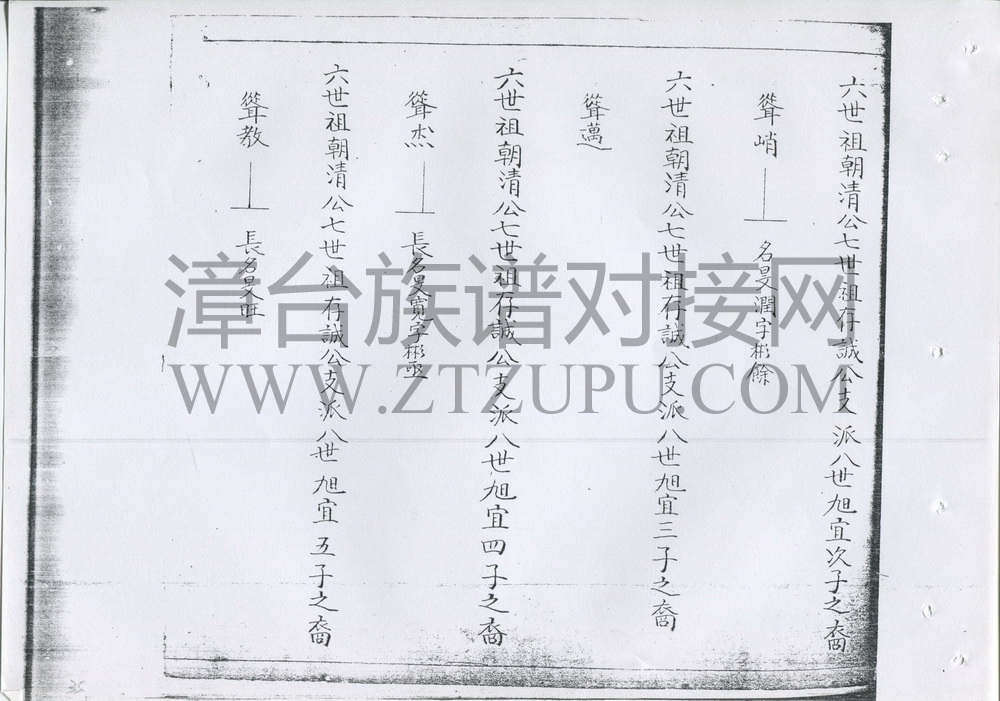 六世祖朝清公七世祖存誠公支派八世旭宜次子之裔
聳峭
名旻潤字彬餘
六世祖朝清公七世祖存誠公支派八世旭宜三子之裔
聳邁
六世祖朝清公七世祖存誠公支派八世旭宜四子之裔
聳杰
長名旻寬字彬亟
六世祖朝清公七世祖存誠公支派八世旭宜五子之裔
聳教
長名旻旺
漳台族谱对接网
WWW.ZTZUPU.COM
35